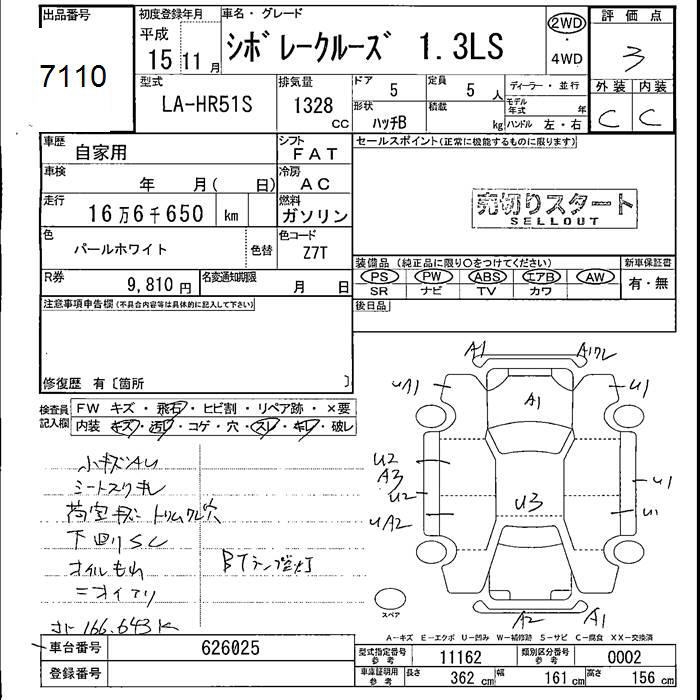 出品番号
7110
初度登録年月
平成
15年11月
車名・グレード
シボレークルーズ 1.3LS
2WD
・
4WD
評価点
3
外装 内装
C C
型式
LA-HR51S
排気量
1328
CC
ドア
5
定員
5人
形状
ハッチB
積載
kg
ディーラー・並行
モデル年式 年
ハンドル 左・右
車歴
自家用
シフト
FAT
車検
年 月( 日)
冷房
AC
走行
16万6千650 km
燃料
ガソリン
色
パールホワイト
色替
色コード
Z7T
R券
9,810円
名変通知期限
月 日
セールスポイント(正常に機能するものに限ります)
売切りスタート
SELLOUT
装備品(純正品に限り〇をつけてください)
PS PW ABS エアB AW
SR ナビ TV カワ
新車保証書
有・無
後日品
注意事項申告欄(不具合内容等は具体的に記入して下さい)
修復歴 有〔箇所 〕
検査員記入欄
FW キズ・飛石・ヒビ割・リペア跡・×要
内装 キズ・汚れ・コゲ・穴・スレ・キレ・破レ
小キズAU
シートスリキレ
荷室キズ トリムクリ穴
下回りSC
オイルもれ
BTランプ点灯
ニオイアリ
166.643K
A1
uA1
u1
A1
u2
A3
u2
uA2
u3
u1
A2
A1
スペア
A-キズ E-エクボ U-凹み W-補修跡 S-サビ C-腐食 XX-交換済
車台番号
626025
登録番号
型式指定番号
参考
11162
類別区分番号
参考
0002
車庫証明用
参考
長さ
362 cm
幅
161 cm
高さ
156 cm